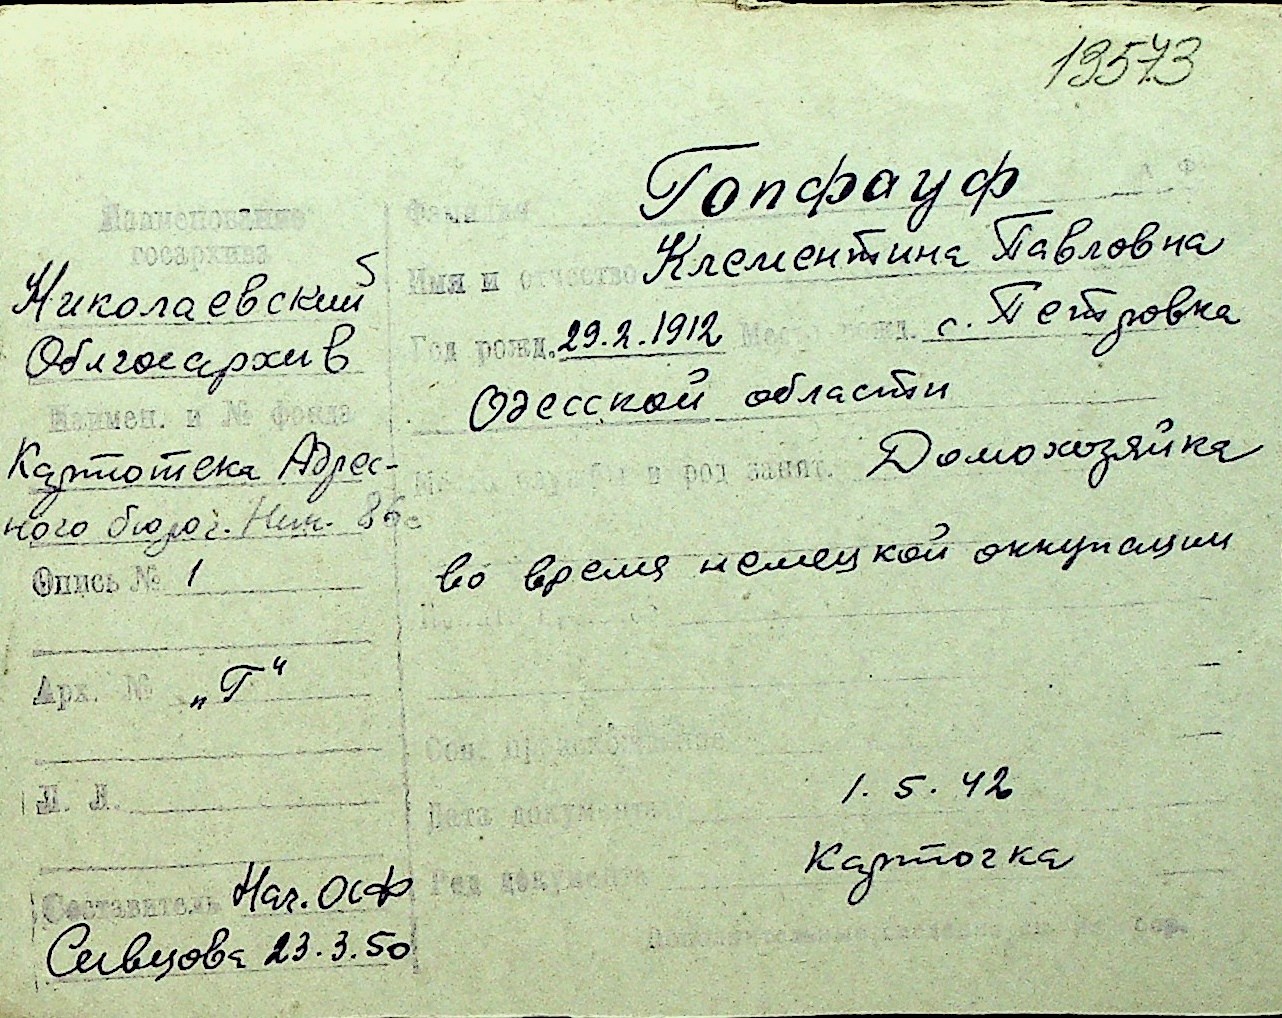 13573
Наименование
госархива
Николаевский
Облгосархив
Наимен. и № фонда
Картотека Адрес-
ного бюро г. Ник. 86с
Опись № 1
Арх. № „Г“
Л. Л.
Составитель Нач. ОСФ
Сивцова 23.3.50
Фамилия Гопфауф
Имя и отчество Клементина Павловна
Год рожд. 29.2.1912 Место рожд. с. Петровка
Одесской области
Место службы и род занят. Домохозяйка
во время немецкой оккупации
Соц. происхождение
Дата документа 1.5.42
Род документа Карточка
Дополнительные сведения на об. стор.